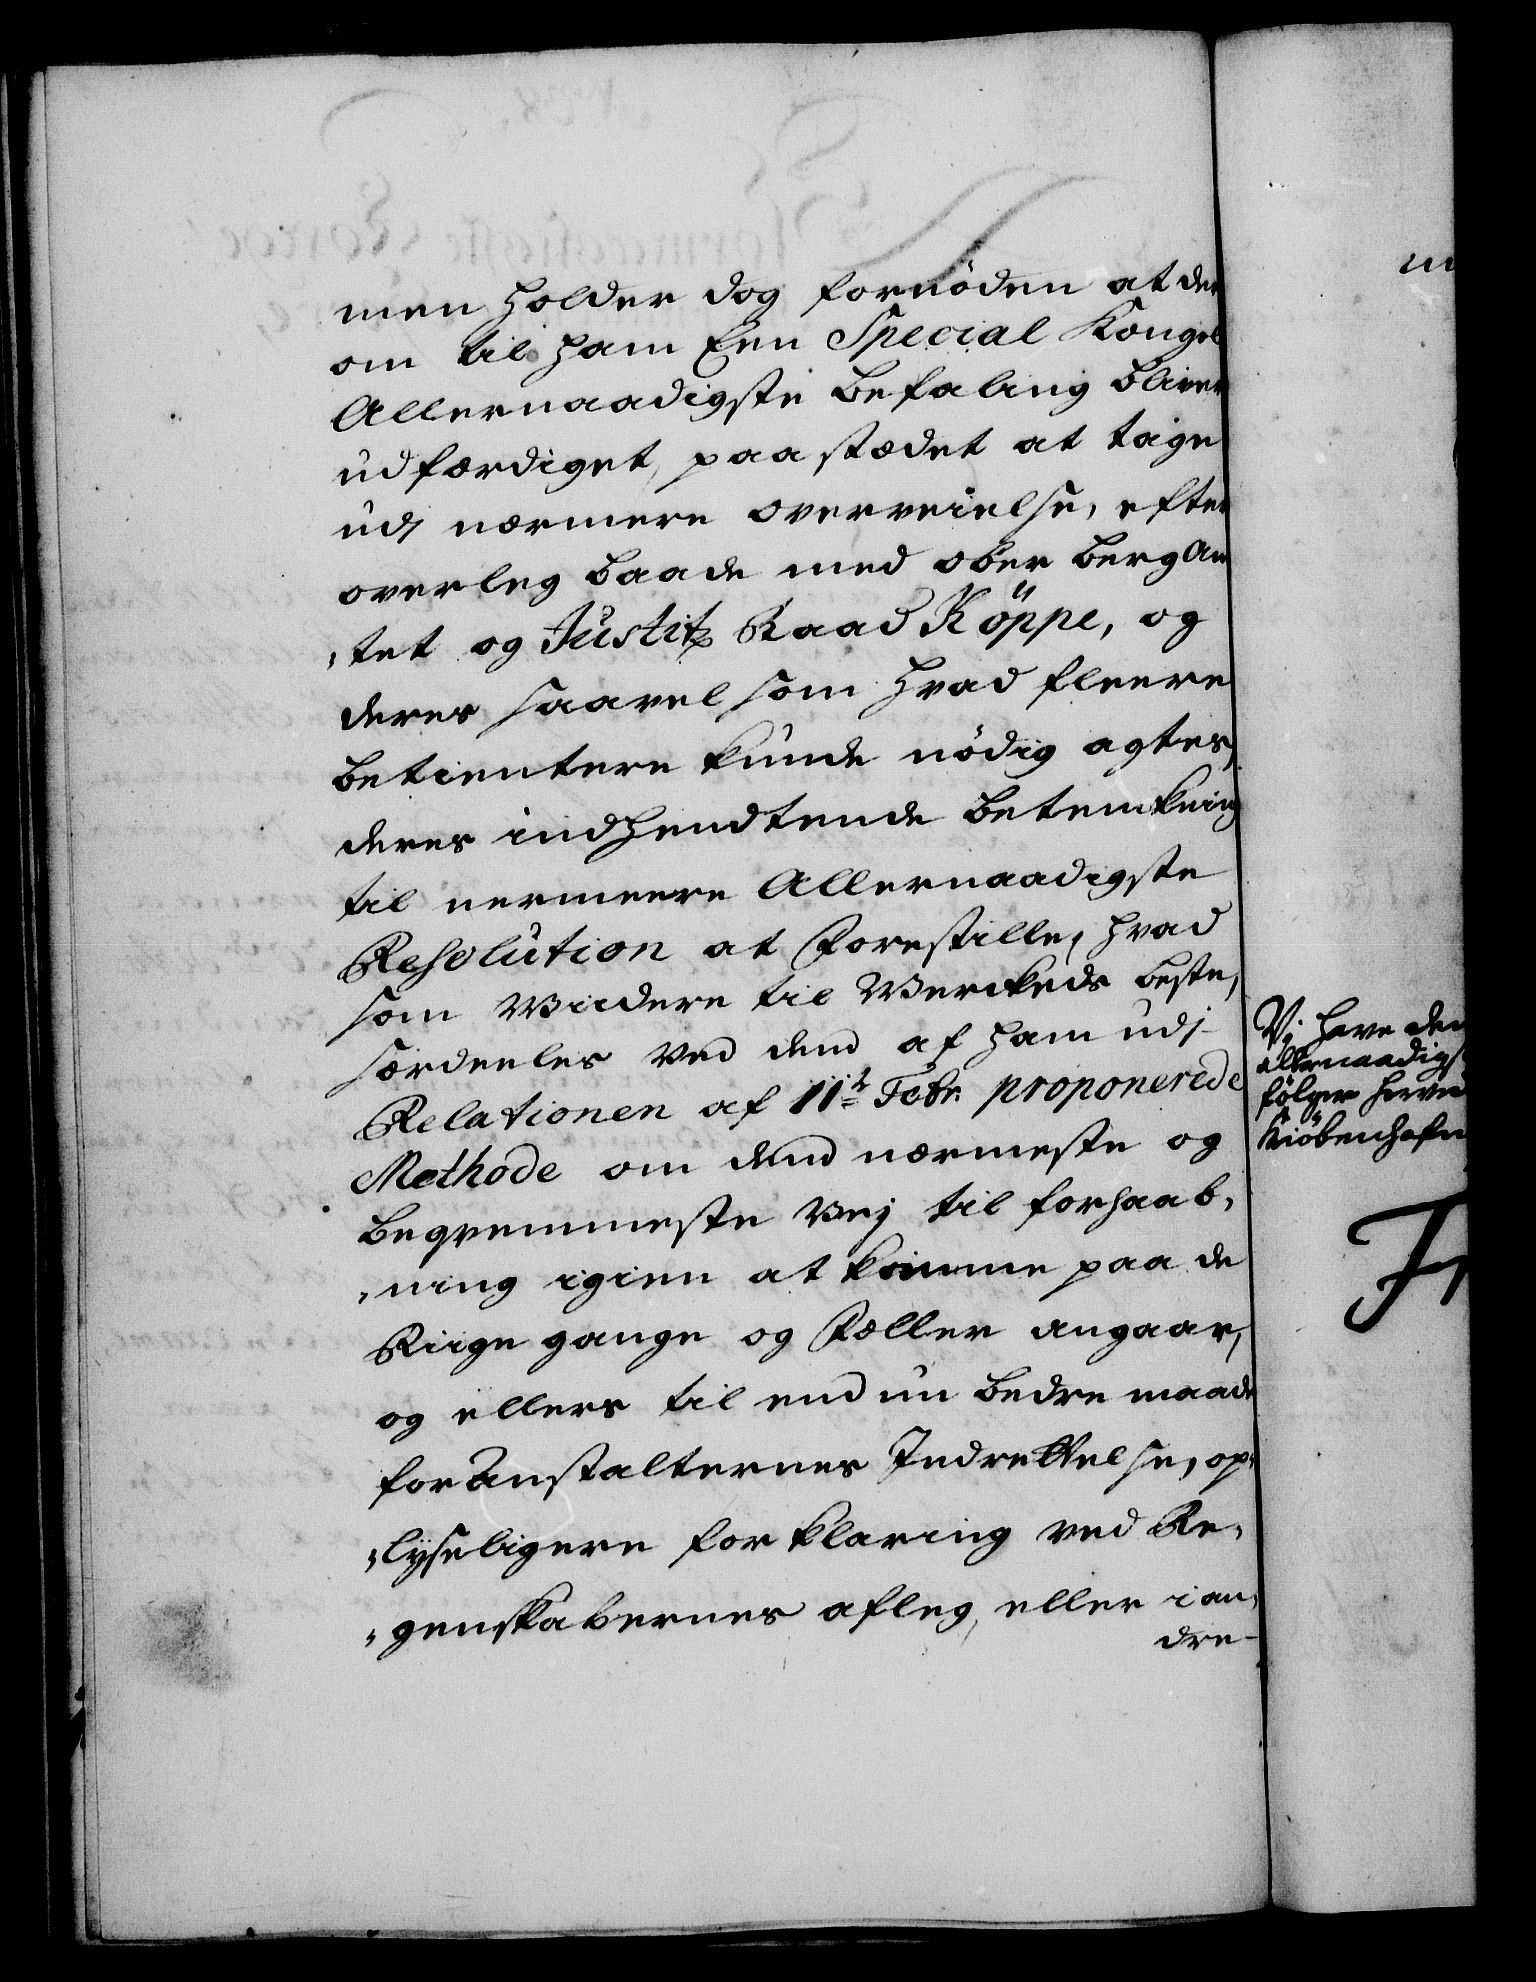 men holder dog fornöden at der
om til ham Een Special Kongel
Allernaadigste befaling bliver
udfærdiget, paa stædet at tage
udj nærmere overveielse, efter
overleg baade med ober bergam
,tet og Justitz Raad Köppe, og
deres saavel som hvad fleere
betientere kunde nödig agtes,
deres indhendtende betenkning
til nermeere Allernaadigste
Resolution at Forestille, hvad
som Viidere til Werckeds beste,
særdeeles ved dend af ham udj
Relationen af 11te Febr. proponerede
Methode om dend nærmeste og
beqvemmeste Vej til forhaab,
,ning igien at komme paa de
Riige gange og Fæller angaar,
og ellers til end nu bedre maade
for Anstalternes Indrettelse, op,
,lyseligere forklaring ved Re,
,genskabernes afleg, eller i an,
dre-
Vj have den
allernaadigst
fölger herved
Kiöbenhafn
F